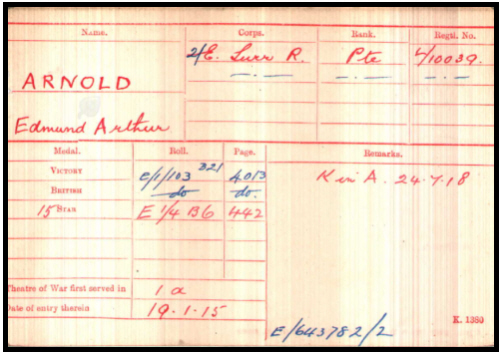 Name. Corps. Rank. Regtl. No.
2/E. Surr R. Pte L/10039.
ARNOLD — . — — . — — . —
Edmund Arthur
Medal. Roll. Page. Remarks.
VICTORY E/1/103 B21 4013 K in A. 24.7.18
BRITISH do do.
15 STAR E 1/4 B6 442
Theatre of War first served in 1 a
Date of entry therein 19.1.15
E/643782/2 K. 1380